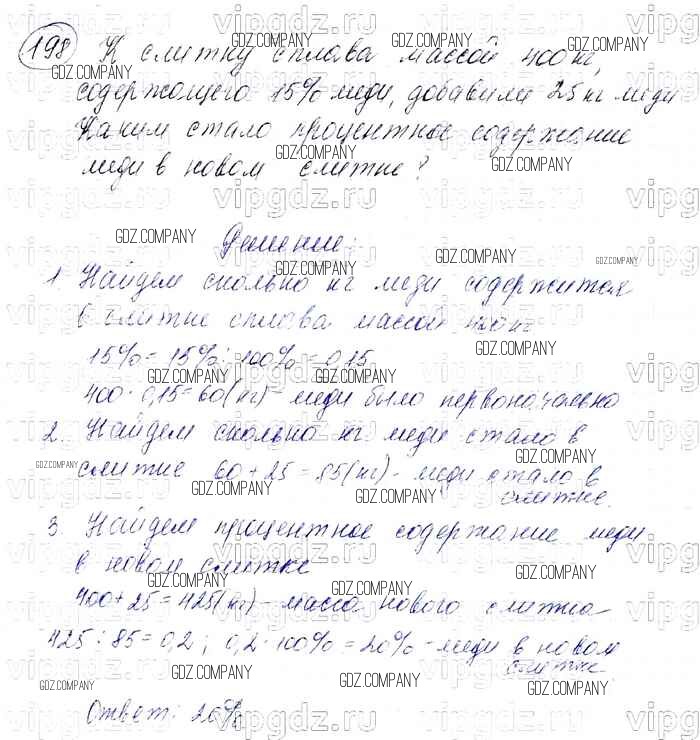 198 К слитку сплава массой 400 кг,
содержащего 15% меди, добавили 25 кг меди
Каким стало процентное содержание
меди в новом слитке?
Решение:
1. Найдем сколько кг меди содержится
в слитке сплава массой 400 кг
15% = 15% : 100% = 0,15
400 · 0,15 = 60 (кг) - меди было первоначально
2. Найдем сколько кг меди стало в
слитке 60 + 25 = 85 (кг) - меди стало в
слитке.
3. Найдем процентное содержание меди
в новом слитке
400 + 25 = 425 (кг) - масса нового слитка
425 : 85 = 0,2 ; 0,2 · 100% = 20% - меди в новом
слитке
Ответ: 20%
GDZ.COMPANY
vipgdz.ru